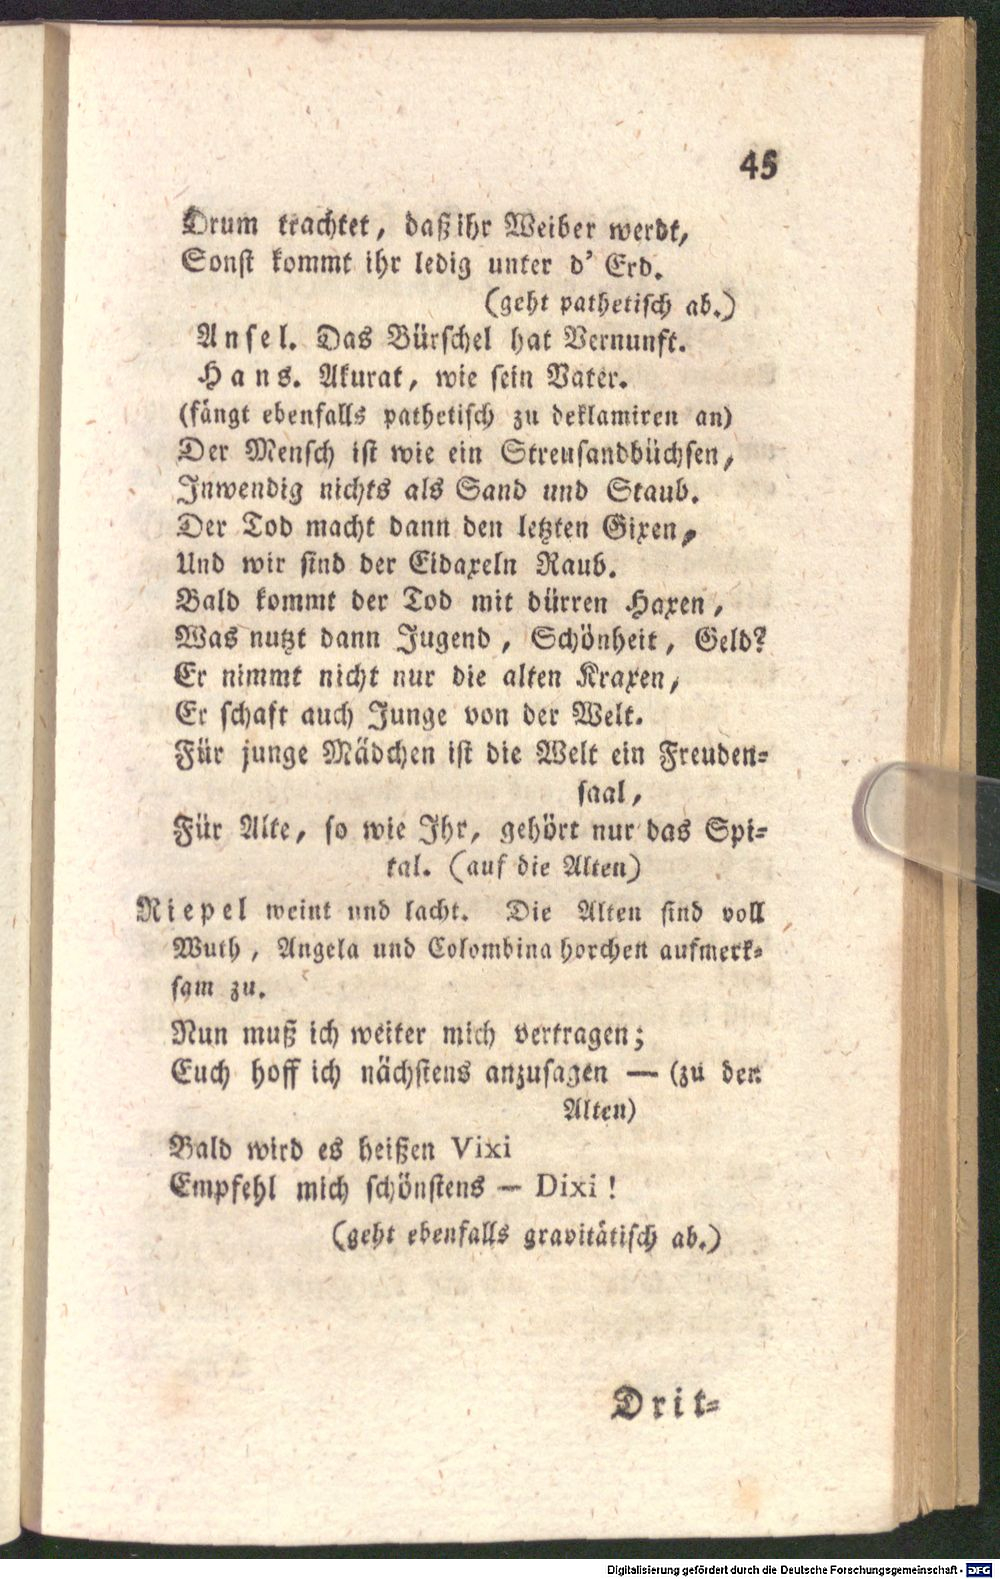 45
Drum trachtet, daß ihr Weiber werdt,
Sonst kommt ihr ledig unter d' Erd.
(geht pathetisch ab.)
Ansel. Das Bürschel hat Vernunft.
Hans. Akurat, wie sein Vater.
(fängt ebenfalls pathetisch zu deklamiren an)
Der Mensch ist wie ein Streusandbüchsen,
Inwendig nichts als Sand und Staub.
Der Tod macht dann den letzten Gixen,
Und wir sind der Eidaxeln Raub.
Bald kommt der Tod mit dürren Haxen,
Was nutzt dann Jugend, Schönheit, Geld?
Er nimmt nicht nur die alten Kraxen,
Er schaft auch Junge von der Welt.
Für junge Mädchen ist die Welt ein Freuden-
saal,
Für Alte, so wie Ihr, gehört nur das Spi-
tal. (auf die Alten)
Riepel weint und lacht. Die Alten sind voll
Wuth, Angela und Colombina horchen aufmerk-
sam zu.
Nun muß ich weiter mich vertragen;
Euch hoff ich nächstens anzusagen — (zu den
Alten)
Bald wird es heißen Vixi
Empfehl mich schönstens — Dixi!
(geht ebenfalls gravitätisch ab.)
Drit-
Digitalisierung gefördert durch die Deutsche Forschungsgemeinschaft - DFG